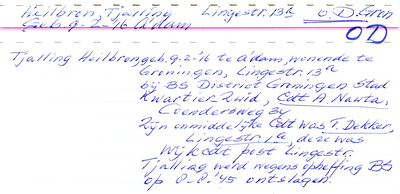 Heilbron, Tjalling Lingestr. 13a O.D. Gron
Geb. 9-2-'16 A'dam OD
Tjalling Heilbron geb. 9-2-'16 te A'dam, wonende te
Groningen, Lingestr. 13a
bij BS District Groningen Stad
Kwartier Zuid, Cdt A. Nauta,
Coendersweg 34
Zijn onmiddelijke Cdt was T. Dekker,
Lingestr. 1a, deze was
Wijkcdt post Lingestr.
Tjalling werd wegens opheffing BS
op 8-8-'45 ontslagen.